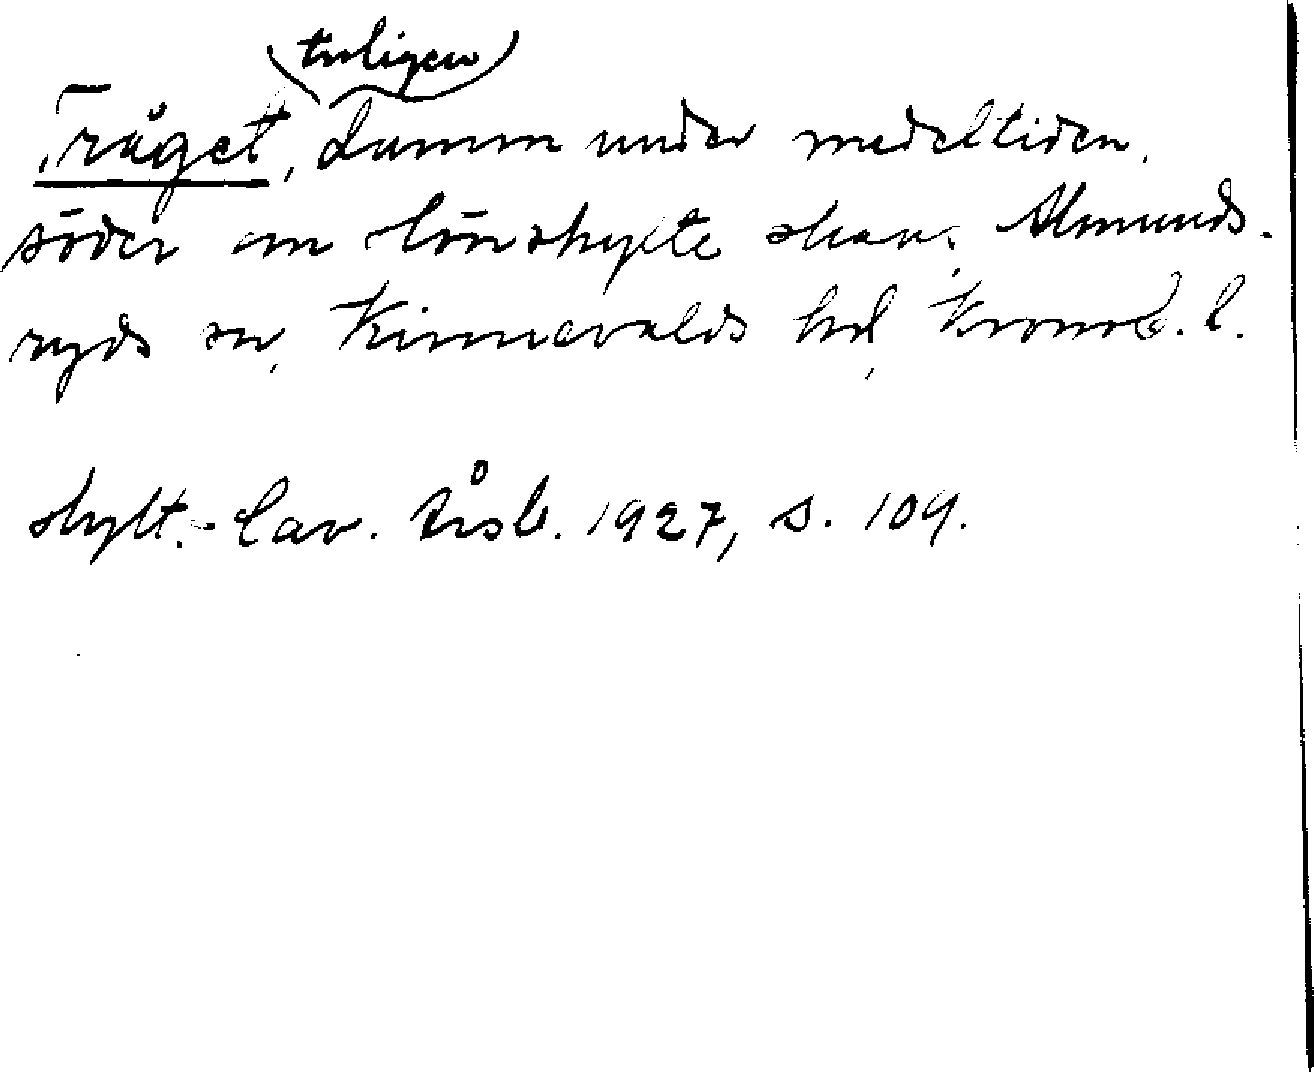 (troligen)
Tråget, damm under medeltiden,
söder om Lönshylte skans. Almunds-
ryds sn, Kinnevalds hd, Kronob. l.
Hylt.-Cav. Årsb. 1927, s. 109.